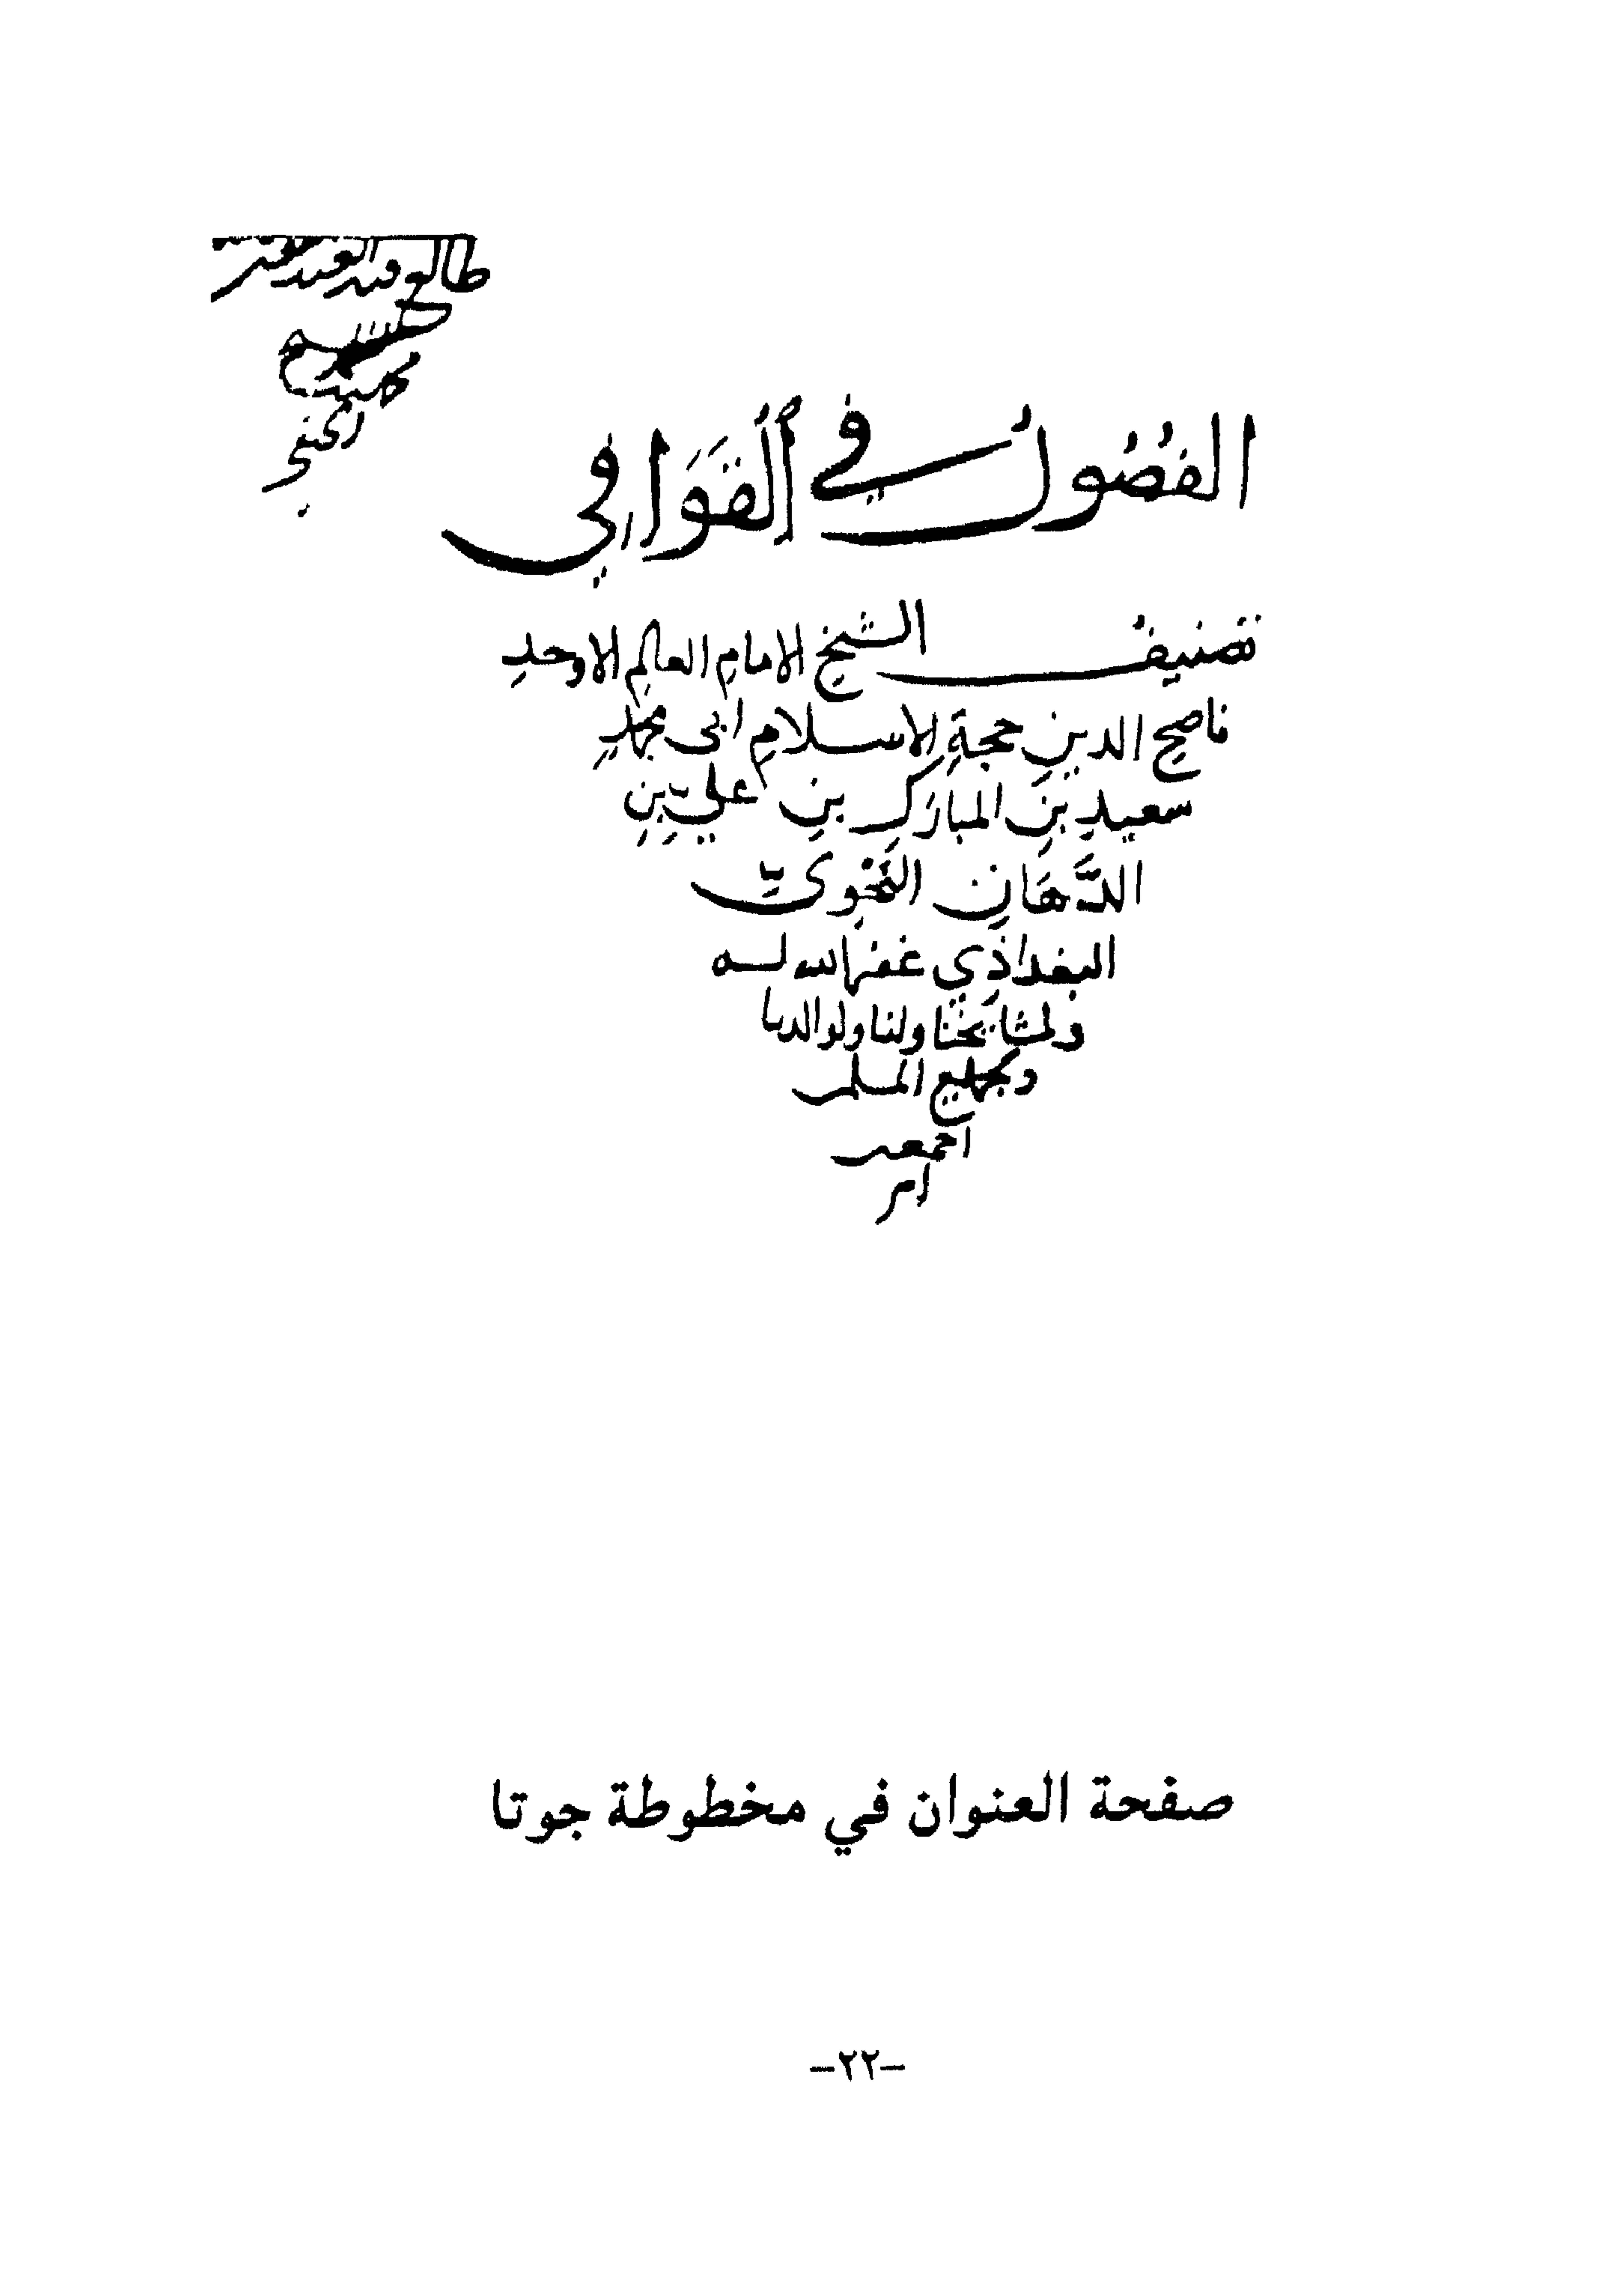 طالع فيه العبد الفقير
الحنفي
الفُصُولُ في اَلْقَوَافِي
تصنيفُ الشيخِ الامامِ العالمِ الاوحدِ
ناصحِ الدينِ حجةِ الاسلامِ ابى محمدٍ
سعيدِ بنِ المبارَكِ بنِ عليّ بنِ
الدَّهَانِ النَّحْوىّ
البغداذي غفر الله له
ولمشايخنا ولنا ولوالدينا
ولجميع المسلمين
اجمعين
امين
صفحة العنوان في مخطوطة جوتا
-٢٢-